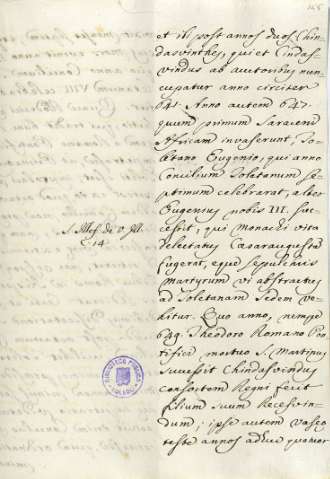 et ibi post annos duos Chin
dasvinthus, qui et Cindas
vindus ab auctoribus nun
cupatur anno circiter
641. Anno autem 647.
quum primum Saraceni
Africam invaserunt, To
letano Eugenio, qui anno
Concilium Toletanum se
ptimum celebrarat, alter
Eugenius nobis III. suc
cessit, qui Monachi vita
delectatus Caesaraugustam
fugerat, eque sepulchris
martyrum vi abstractus
ad Toletanam Sedem ve
hitur. Quo anno, nempe
649. Theodoro Romano Pon
tifici mortuo S. Martinus
successit Chindasvindus
consortem Regni fecit
filium suum Recesvin
dum; ipse autem Vaseo
teste annos adhuc quatuor
de v. Ill.
c. 14.
BIBLIOTECA PUBLICA
TOLEDO